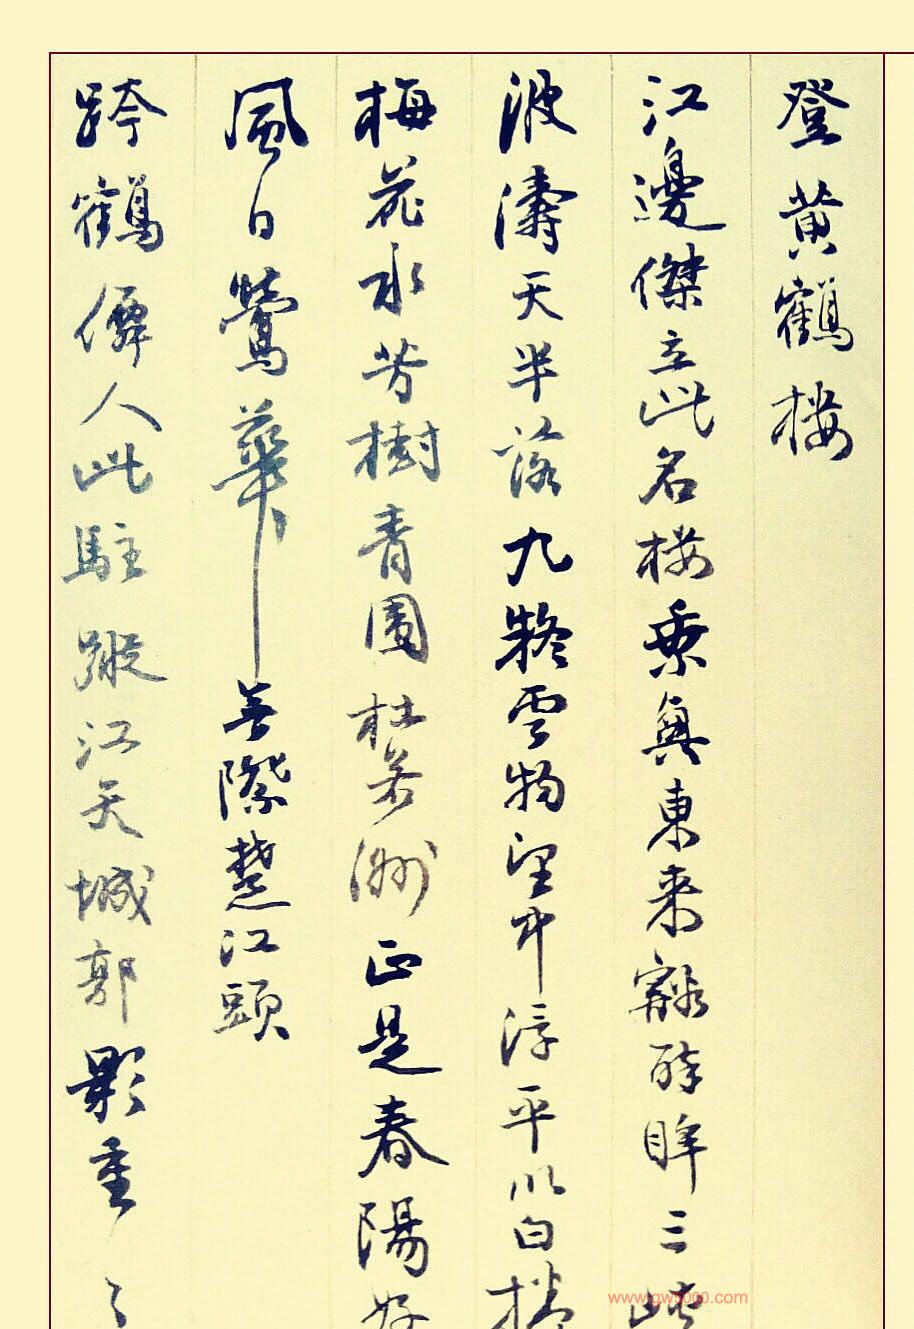 登黄鶴楼
江邊傑立此名楼乘興東來豁醉眸三峽
波濤天半落九疑雲物望中浮平川白捲
梅花水芳樹青圍杜若洲正是春陽好
風日鶯華無際楚江頭
跨鶴僊人此駐蹤江天城郭影重々
www.gw5000.com